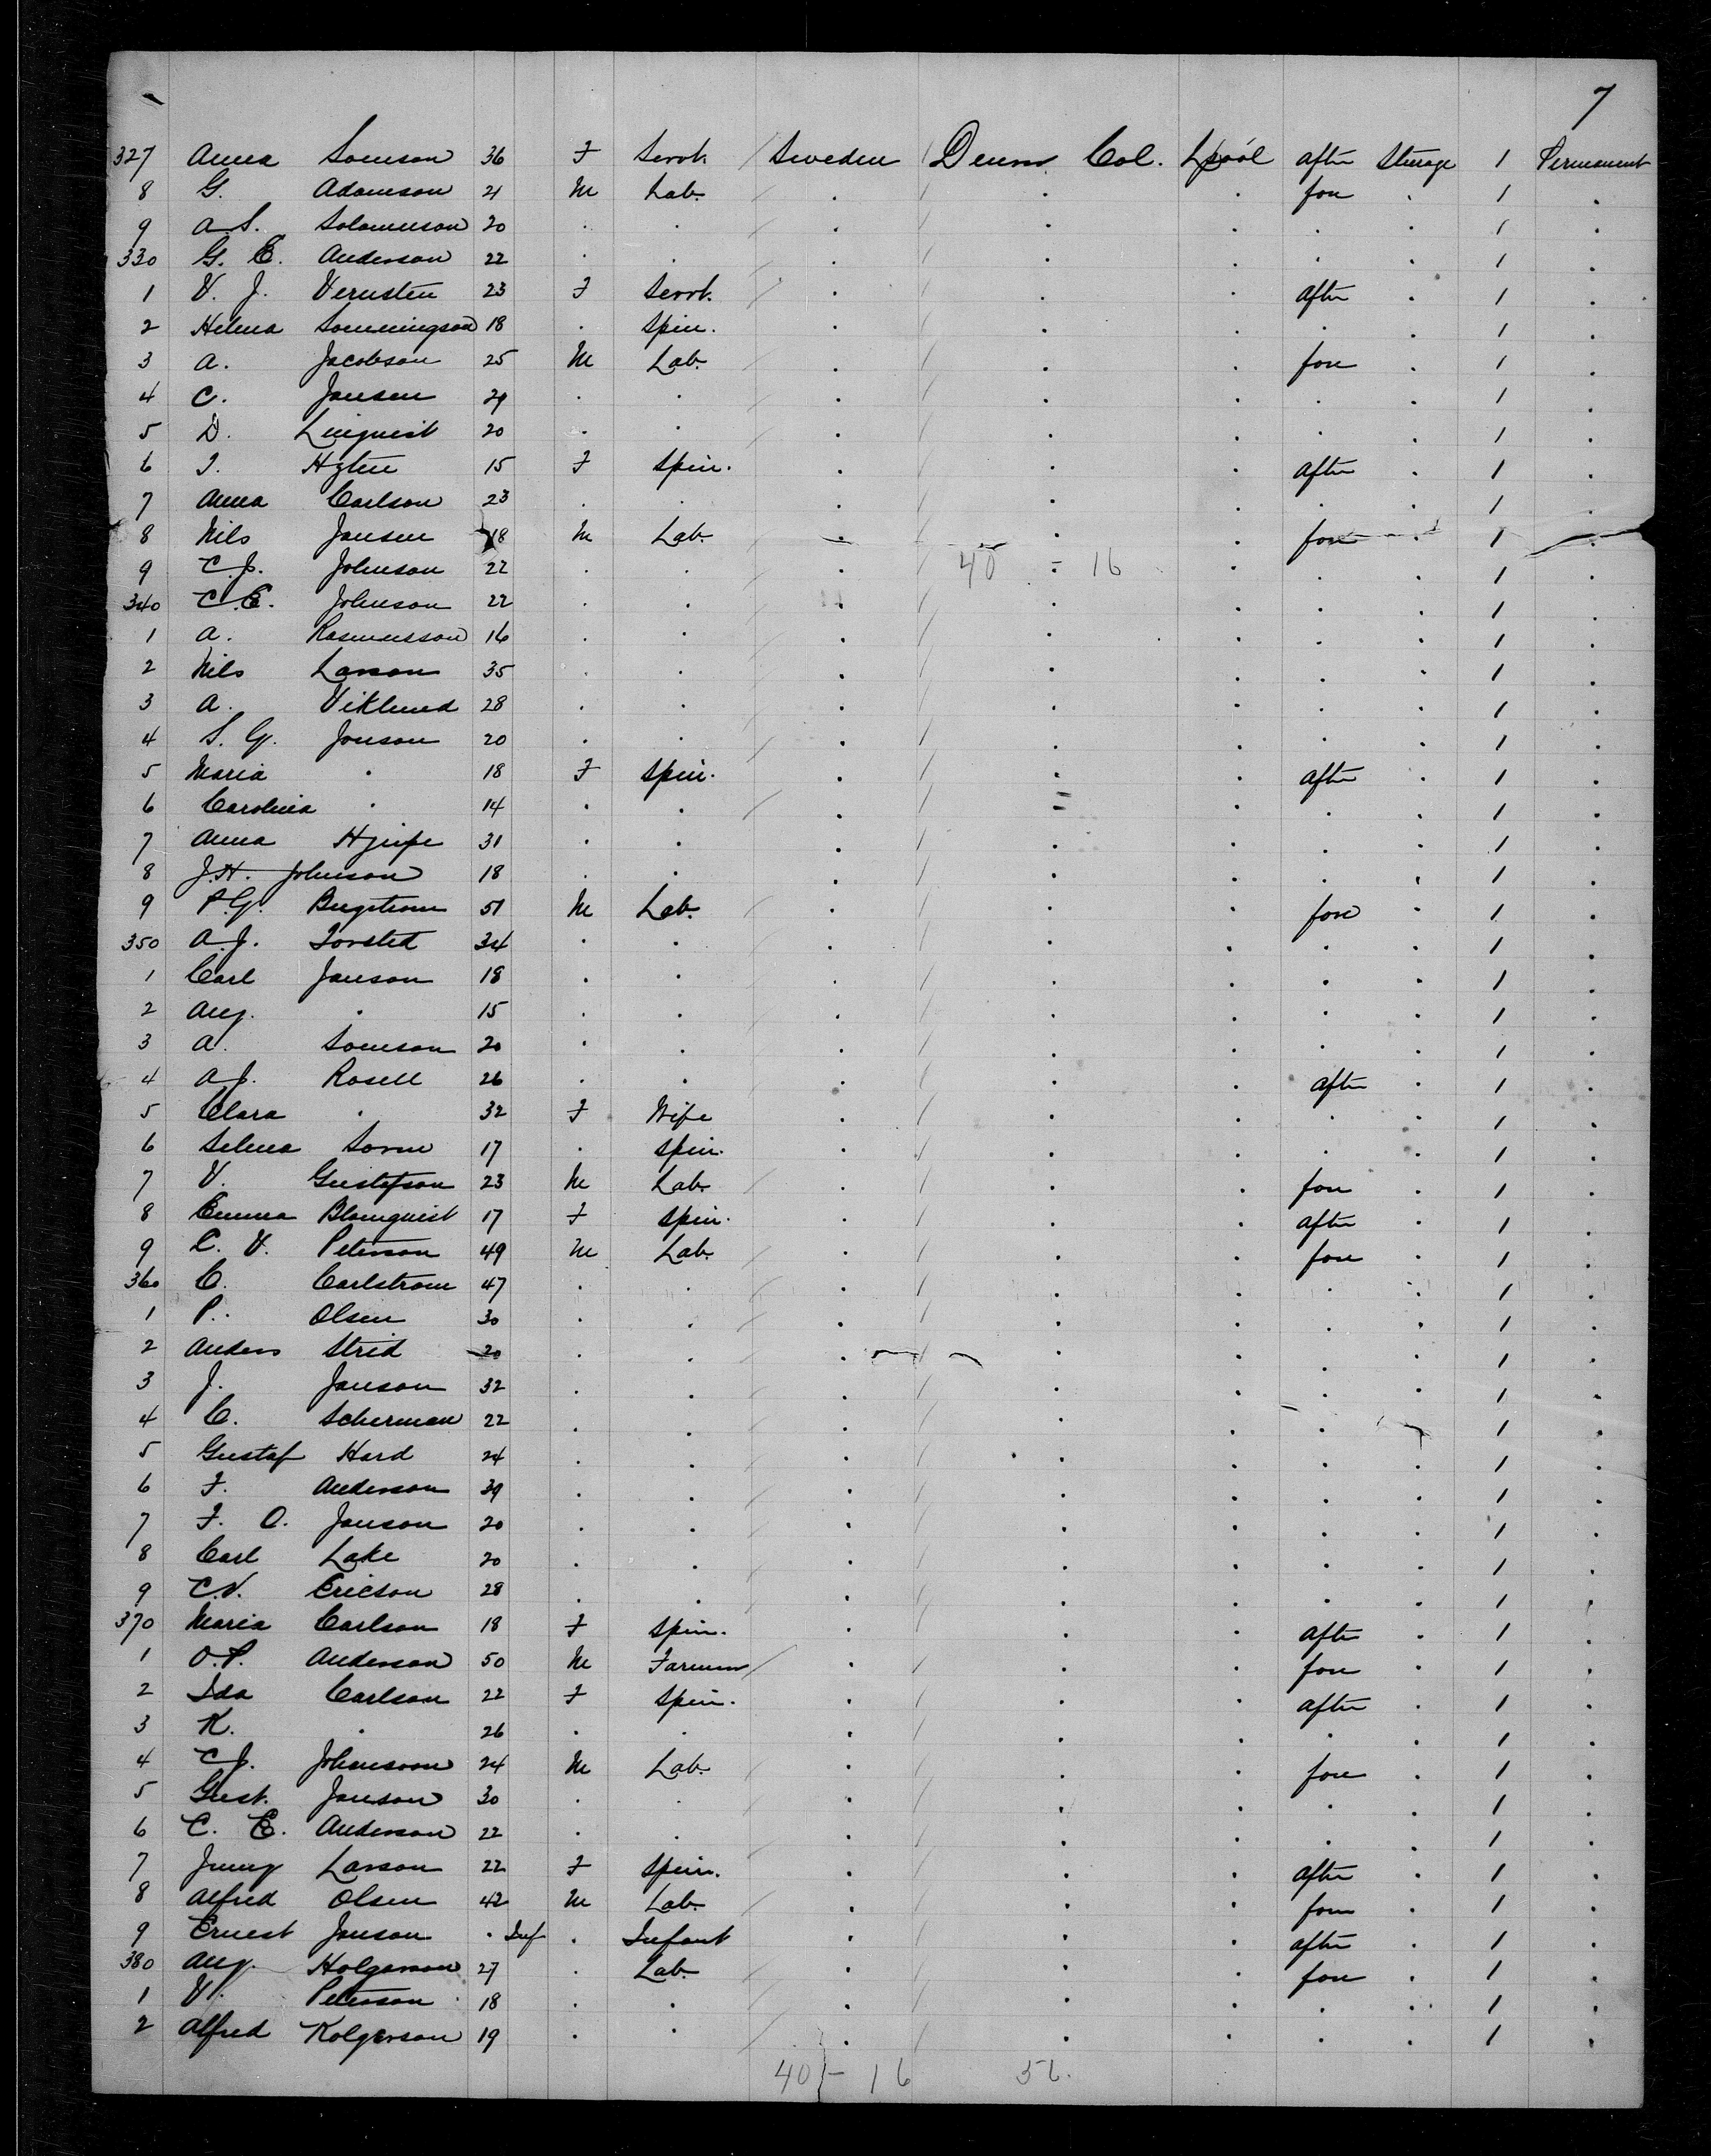 7
327 Anna Somson 36 F Servt. / Sweden / Denver Col. Lpool after Steerage 1 Permanent
8 G. Adamson 21 M Lab. / . / . . fore . 1 .
9 A. S. Solomunson 20 . . / . / . . . . 1 .
330 G. E. Anderson 22 . . / . / . . . . 1 .
1 V. J. Vernsten 23 F Servt. / . / . . after . 1 .
2 Helma Sommingson 18 . Spin. / . / . . . . 1 .
3 A. Jacobson 25 M Lab. / . / . . fore . 1 .
4 C. Jansen 29 . . / . / . . . . 1 .
5 D. Linquist 20 . . / . / . . . . 1 .
6 I. Hzten 15 F Spin. / . / . . after . 1 .
7 Anna Carlson 23 . . / . / . . . . 1 .
8 Nils Jansen 18 M Lab. / . / . . fore . 1 .
9 C. J. Johnson 22 . . / . / 40 - 16 . . . 1 .
340 C. E. Johnson 22 . . / . / . . . . 1 .
1 A. Rasmusson 16 . . / . / . . . . 1 .
2 Nils Larson 35 . . / . / . . . . 1 .
3 A. Viklund 28 . . / . / . . . . 1 .
4 S. G. Jonson 20 . . / . / . . . . 1 .
5 Maria . 18 F Spin. / . / . . after . 1 .
6 Carolina . 14 . . / . / . . . . 1 .
7 Anna 31 . . / . / . . . . 1 .
8 J. H. Johnson 18 . . / . / . . . . 1 .
9 P. G. Bergstrom 51 M Lab. / . / . . fore . 1 .
350 A. J. Torsted 34 . . / . / . . . . 1 .
1 Carl Janson 18 . . / . / . . . . 1 .
2 Aug. . 15 . . / . / . . . . 1 .
3 A. Somson 20 . . / . / . . . . 1 .
4 A. J. Rosell 26 . . / . / . . after . 1 .
5 Clara . 32 F Wife / . / . . . . 1 .
6 Selma Sorm 17 . Spin. / . / . . . . 1 .
7 V. Gustafson 23 M Lab. / . / . . fore . 1 .
8 Emma Blomquist 17 F Spin. / . / . . after . 1 .
9 C. V. Peterson 49 M Lab. / . / . . fore . 1 .
360 C. Carlstrom 47 . . / . / . . . . 1 .
1 P. Olsen 30 . . / . / . . . . 1 .
2 Anders Strid 20 . . / . / . . . . 1 .
3 J. Janson 32 . . / . / . . . . 1 .
4 C. Scherman 22 . . / . / . . . . 1 .
5 Gustaf Hard 24 . . / . / . . . . 1 .
6 F. Anderson 39 . . / . / . . . . 1 .
7 F. O. Janson 20 . . / . / . . . . 1 .
8 Carl Lake 20 . . / . / . . . . 1 .
9 C. V. Ericson 28 . . / . / . . . . 1 .
370 Maria Carlson 18 F Spin. / . / . . after . 1 .
1 O. P. Anderson 50 M Farmer / . / . . fore . 1 .
2 Ida Carlson 22 F Spin. / . / . . after . 1 .
3 K. . 26 . . / . / . . . . 1 .
4 C. J. Johansson 24 M Lab. / . / . . fore . 1 .
5 Gust. Janson 30 . . / . / . . . . 1 .
6 C. E. Anderson 22 . . / . / . . . . 1 .
7 Jenny Larson 22 F Spin. / . / . . after . 1 .
8 Alfred Olsen 42 M Lab. / . / . . fore . 1 .
9 Ernest Janson . Inf . Infant / . / . . after . 1 .
380 Aug. Holgerson 27 . Lab. / . / . . fore . 1 .
1 V. Peterson 18 . . / . / . . . . 1 .
2 Alfred Kolgerson 19 . . / . / . . . . 1 .
40 - 16 56.